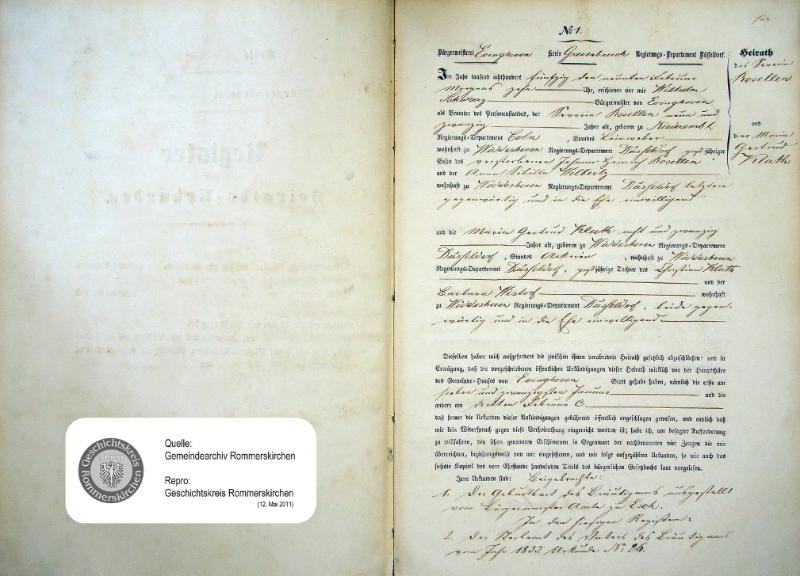 Quelle:
Gemeindearchiv Rommerskirchen
Repro:
Geschichtskreis Rommerskirchen
(12. Mai 2011)
Geschichtskreis
Rommerskirchen
Register
Heiraths-Urkunden
No 1.
Bürgermeisterei Evinghoven Kreis Grevenbroich Regierungs-Departement Düsseldorf.
Heirath
des Severin
Rosellen
und
der Maria
Gertrud
Kluth
Im Jahr tausend achthundert fünfzig den neunten Februar
Morgens zehn Uhr, erschienen vor mir Wilhelm
Bürgermeister von Evinghoven
als Beamten des Personenstandes, der Severin Rosellen neun und
zwanzig Jahre alt, geboren zu Niederembt
Regierungs-Departement Cöln, Standes Leinweber
wohnhaft zu Widdeshoven Regierungs-Departement Düsseldorf, großjähriger
Sohn des verstorbenen Johann Heinrich Rosellen
und der Anna Sibilla
wohnhaft zu Widdeshoven Regierungs-Departement Düsseldorf letztere
gegenwärtig und in die Ehe einwilligend
und die Maria Gertrud Kluth acht und zwanzig
Jahre alt, geboren zu Widdeshoven Regierungs-Departement
Düsseldorf, Standes Ackerin, wohnhaft zu Widdeshoven
Regierungs-Departement Düsseldorf, großjährige Tochter des Christian Kluth
und der
Barbara wohnhaft
zu Widdeshoven Regierungs-Departement Düsseldorf, beide gegen-
wärtig und in die Ehe einwilligend
Dieselben haben mich aufgefordert die zwischen ihnen verabredete Heirath gesetzlich abzuschließen; und in
Erwägung, daß die vorgeschriebenen öffentlichen Ankündigungen dieser Heirath wirklich vor der Hauptthüre
des Gemeinde-Hauses von Evinghoven Statt gehabt haben, nämlich die erste am
sieben und zwanzigsten Januar und die
andere am dritten Februar c.
daß ferner die Urkunden dieser Ankündigungen gebührend öffentlich angeschlagen gewesen, und endlich daß
mir kein Widerspruch gegen diese Verheirathung eingereicht worden ist; habe ich, um besagter Aufforderung
zu willfahren, den schon genannten Erschienenen in Gegenwart der nachbenannten vier Zeugen die mir
überreichten, beziehungsweise von mir eingesehenen, und wie folgt aufgezählten Urkunden, so wie auch das
sechste Kapitel des vom Ehestande handelnden Titels des bürgerlichen Gesetzbuchs laut vorgelesen.
Jene Urkunden sind: Beigebrachte:
1. Der Geburtsact des Bräutigams ausgestellt
vom Bürgermeister Amte zu Esch.
In den hiesigen Registern:
2. Der Sterbeact des Vaters des Bräutigams
vom Jahr 1833 Urkunde No 26.